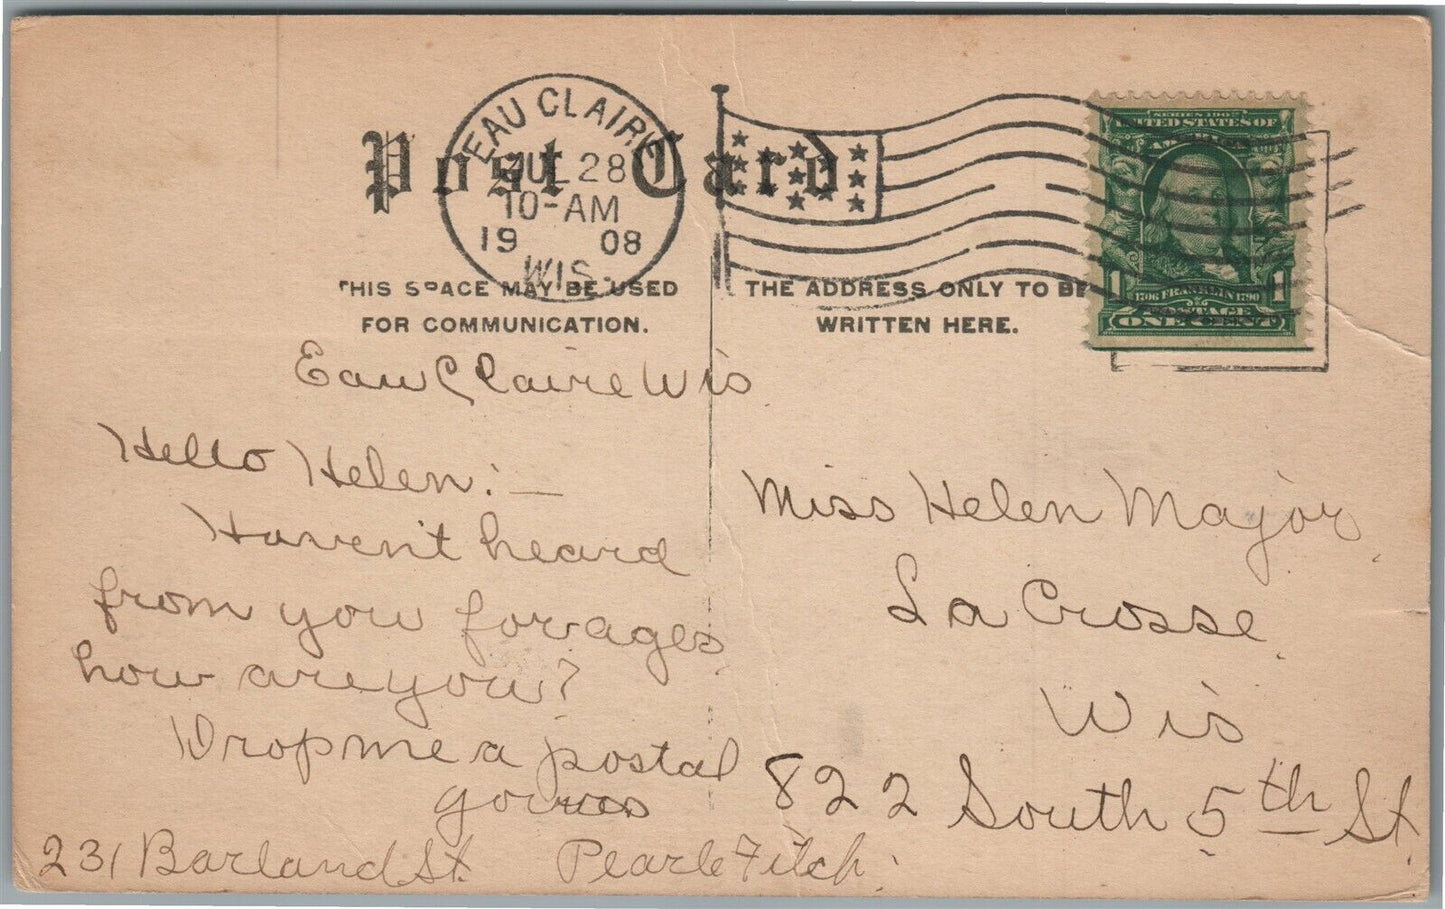 EAU CLAIRE
JUL 28
10-AM
19 08
WIS.
Post Card
THIS SPACE MAY BE USED
FOR COMMUNICATION.
THE ADDRESS ONLY TO BE
WRITTEN HERE.
SERIES 1902
UNITED STATES OF
AMERICA
1 1706 FRANKLIN 1790 1
POSTAGE
ONE CENT
Eau Claire Wis
Hello Helen:—
Haven't heard
from you for ages
how are you?
Drop me a postal
yours
Pearle Fitch.
231 Barland St.
Miss Helen Major,
La Crosse
Wis
822 South 5th St.